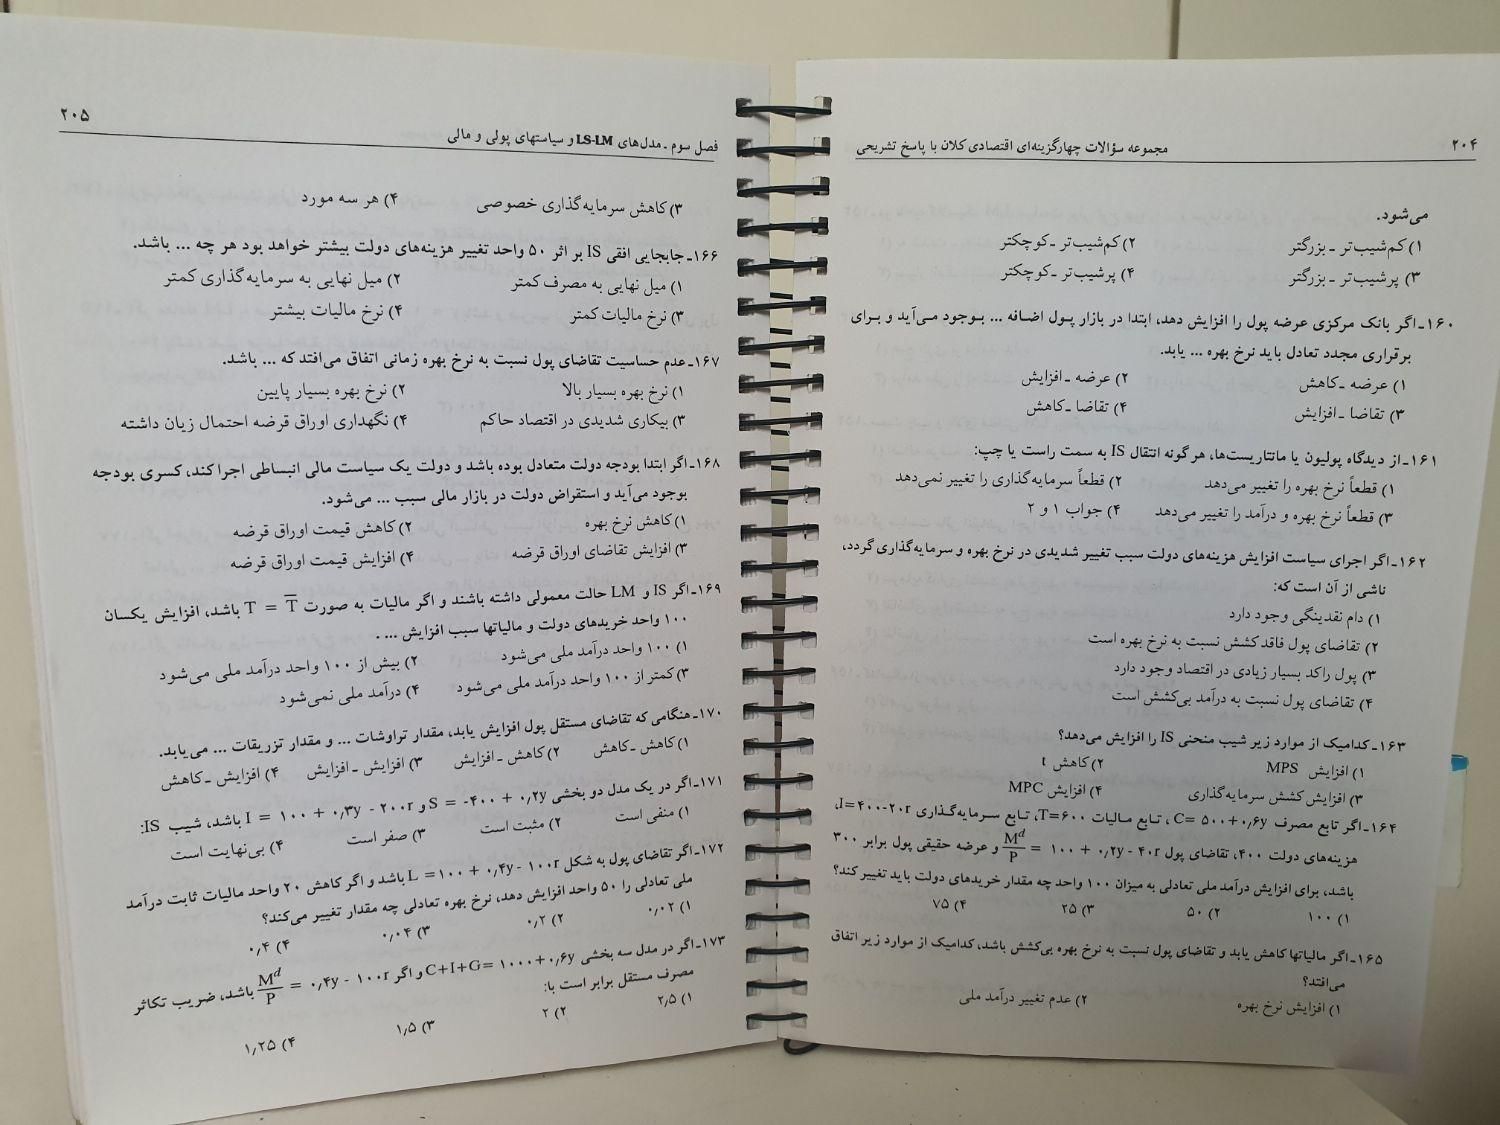 ۲۰۴ مجموعه سؤالات چهارگزینه‌ای اقتصادی کلان با پاسخ تشریحی
می‌شود.
۱) کم‌شیب‌تر ـ بزرگتر ۲) کم‌شیب‌تر ـ کوچکتر
۳) پرشیب‌تر ـ بزرگتر ۴) پرشیب‌تر ـ کوچکتر
۱۶۰ـ اگر بانک مرکزی عرضه پول را افزایش دهد، ابتدا در بازار پول اضافه ... بوجود می‌آید و برای
برقراری مجدد تعادل باید نرخ بهره ... یابد.
۱) عرضه ـ کاهش ۲) عرضه ـ افزایش
۳) تقاضا ـ افزایش ۴) تقاضا ـ کاهش
۱۶۱ـ از دیدگاه پولیون یا مانتاریست‌ها، هرگونه انتقال IS به سمت راست یا چپ:
۱) قطعاً نرخ بهره را تغییر می‌دهد ۲) قطعاً سرمایه‌گذاری را تغییر نمی‌دهد
۳) قطعاً نرخ بهره و درآمد را تغییر می‌دهد ۴) جواب ۱ و ۲
۱۶۲ـ اگر اجرای سیاست افزایش هزینه‌های دولت سبب تغییر شدیدی در نرخ بهره و سرمایه‌گذاری گردد،
ناشی از آن است که:
۱) دام نقدینگی وجود دارد
۲) تقاضای پول فاقد کشش نسبت به نرخ بهره است
۳) پول راکد بسیار زیادی در اقتصاد وجود دارد
۴) تقاضای پول نسبت به درآمد بی‌کشش است
۱۶۳ـ کدامیک از موارد زیر شیب منحنی IS را افزایش می‌دهد؟
۱) افزایش MPS ۲) کاهش t
۳) افزایش کشش سرمایه‌گذاری ۴) افزایش MPC
۱۶۴ـ اگر تابع مصرف C= ۵۰۰+۰٫۶y ، تـابع مـالیات T=۶۰۰، تـابع سـرمایه‌گـذاری I=۴۰۰-۲۰r،
هزینه‌های دولت ۴۰۰، تقاضای پول M^d/P = ۱۰۰ + ۰٫۲y - ۴۰r و عرضه حقیقی پول برابر ۳۰۰
باشد، برای افزایش درآمد ملی تعادلی به میزان ۱۰۰ واحد چه مقدار خریدهای دولت باید تغییر کند؟
۱) ۱۰۰ ۲) ۵۰ ۳) ۲۵ ۴) ۷۵
۱۶۵ـ اگر مالیاتها کاهش یابد و تقاضای پول نسبت به نرخ بهره بی‌کشش باشد، کدامیک از موارد زیر اتفاق
می‌افتد؟
۱) افزایش نرخ بهره ۲) عدم تغییر درآمد ملی
فصل سوم ـ مدل‌های LS-LM و سیاستهای پولی و مالی ۲۰۵
۳) کاهش سرمایه‌گذاری خصوصی ۴) هر سه مورد
۱۶۶ـ جابجایی افقی IS بر اثر ۵۰ واحد تغییر هزینه‌های دولت بیشتر خواهد بود هر چه ... باشد.
۱) میل نهایی به مصرف کمتر ۲) میل نهایی به سرمایه‌گذاری کمتر
۳) نرخ مالیات کمتر ۴) نرخ مالیات بیشتر
۱۶۷ـ عدم حساسیت تقاضای پول نسبت به نرخ بهره زمانی اتفاق می‌افتد که ... باشد.
۱) نرخ بهره بسیار بالا ۲) نرخ بهره بسیار پایین
۳) بیکاری شدیدی در اقتصاد حاکم ۴) نگهداری اوراق قرضه احتمال زیان داشته
۱۶۸ـ اگر ابتدا بودجه دولت متعادل بوده باشد و دولت یک سیاست مالی انبساطی اجرا کند، کسری بودجه
بوجود می‌آید و استقراض دولت در بازار مالی سبب ... می‌شود.
۱) کاهش نرخ بهره ۲) کاهش قیمت اوراق قرضه
۳) افزایش تقاضای اوراق قرضه ۴) افزایش قیمت اوراق قرضه
۱۶۹ـ اگر IS و LM حالت معمولی داشته باشند و اگر مالیات به صورت T = T̅ باشد، افزایش یکسان
۱۰۰ واحد خریدهای دولت و مالیاتها سبب افزایش ... .
۱) ۱۰۰ واحد درآمد ملی می‌شود ۲) بیش از ۱۰۰ واحد درآمد ملی می‌شود
۳) کمتر از ۱۰۰ واحد درآمد ملی می‌شود ۴) درآمد ملی نمی‌شود
۱۷۰ـ هنگامی که تقاضای مستقل پول افزایش یابد، مقدار تراوشات ... و مقدار تزریقات ... می‌یابد.
۱) کاهش ـ کاهش ۲) کاهش ـ افزایش ۳) افزایش ـ افزایش ۴) افزایش ـ کاهش
۱۷۱ـ اگر در یک مدل دو بخشی S = -۴۰۰ + ۰٫۲y و I = ۱۰۰ + ۰٫۳y - ۲۰۰r باشد، شیب IS:
۱) منفی است ۲) مثبت است ۳) صفر است ۴) بی‌نهایت است
۱۷۲ـ اگر تقاضای پول به شکل L =۱۰۰ + ۰٫۴y - ۱۰۰r باشد و اگر کاهش ۲۰ واحد مالیات ثابت درآمد
ملی تعادلی را ۵۰ واحد افزایش دهد، نرخ بهره تعادلی چه مقدار تغییر می‌کند؟
۱) ۰٫۰۲ ۲) ۰٫۲ ۳) ۰٫۰۴ ۴) ۰٫۴
۱۷۳ـ اگر در مدل سه بخشی C+I+G= ۱۰۰۰+۰٫۶y و اگر M^d/P = ۰٫۴y - ۱۰۰r باشد، ضریب تکاثر
مصرف مستقل برابر است با:
۱) ۲٫۵ ۲) ۲ ۳) ۱٫۵ ۴) ۱٫۲۵